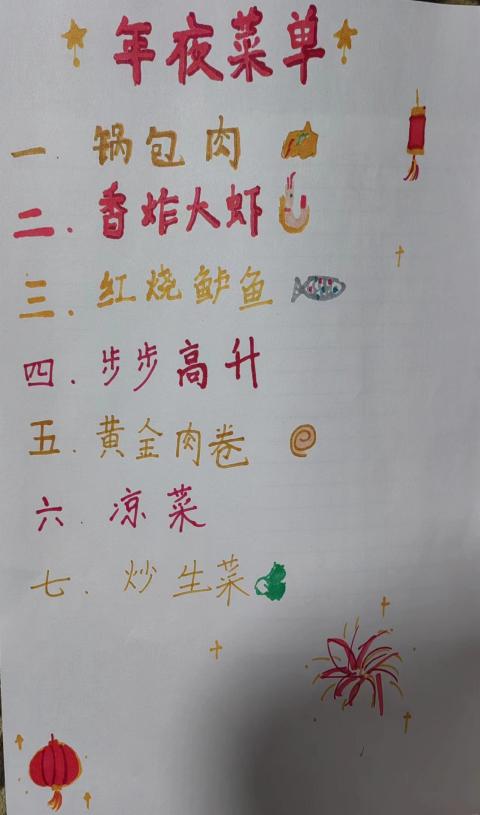 年夜菜单
一. 锅包肉
二. 香炸大虾
三. 红烧鲈鱼
四. 步步高升
五. 黄金肉卷
六. 凉菜
七. 炒生菜